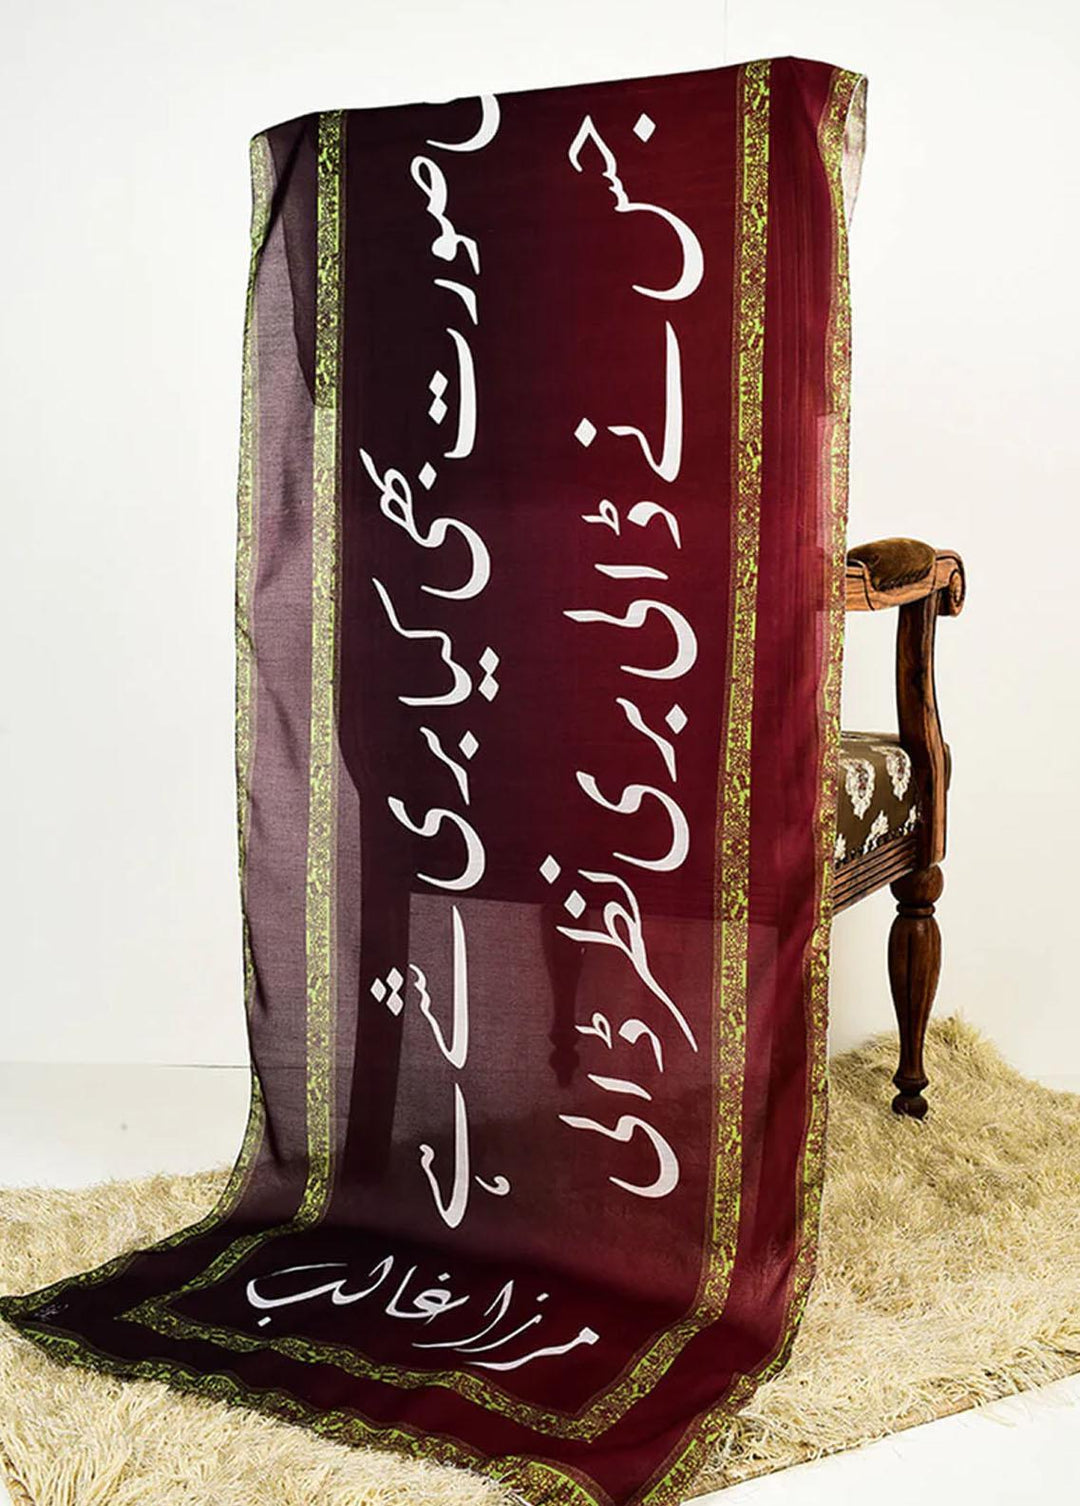 جس نے ڈالی بری نظر ڈالی
صورت بھی کیا بری شے ہے
مرزا غالب